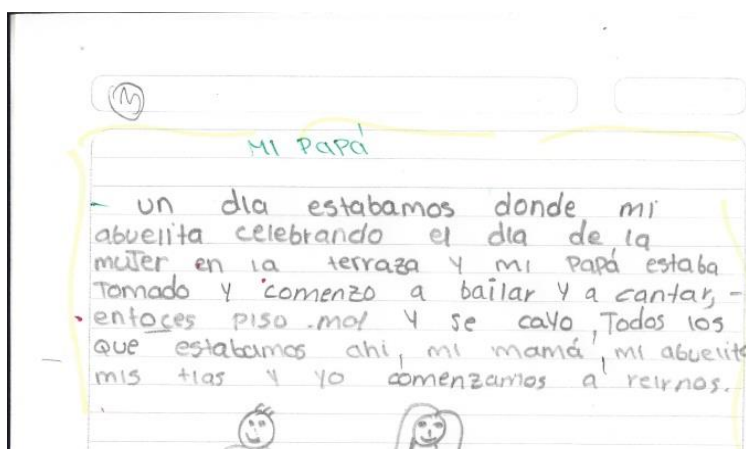 MI PaPá
- un dia estabamos donde mi
abuelita celebrando el dia de la
muJer en la terraza y mi Papá estaba
Tomado y comenzo a bailar y a cantar, -
entoces piso .mal y se cayo, Todos los
Que estabamos ahi, mi mamá, mi abuelita
mis tias y yo comenzamos a reirnos.